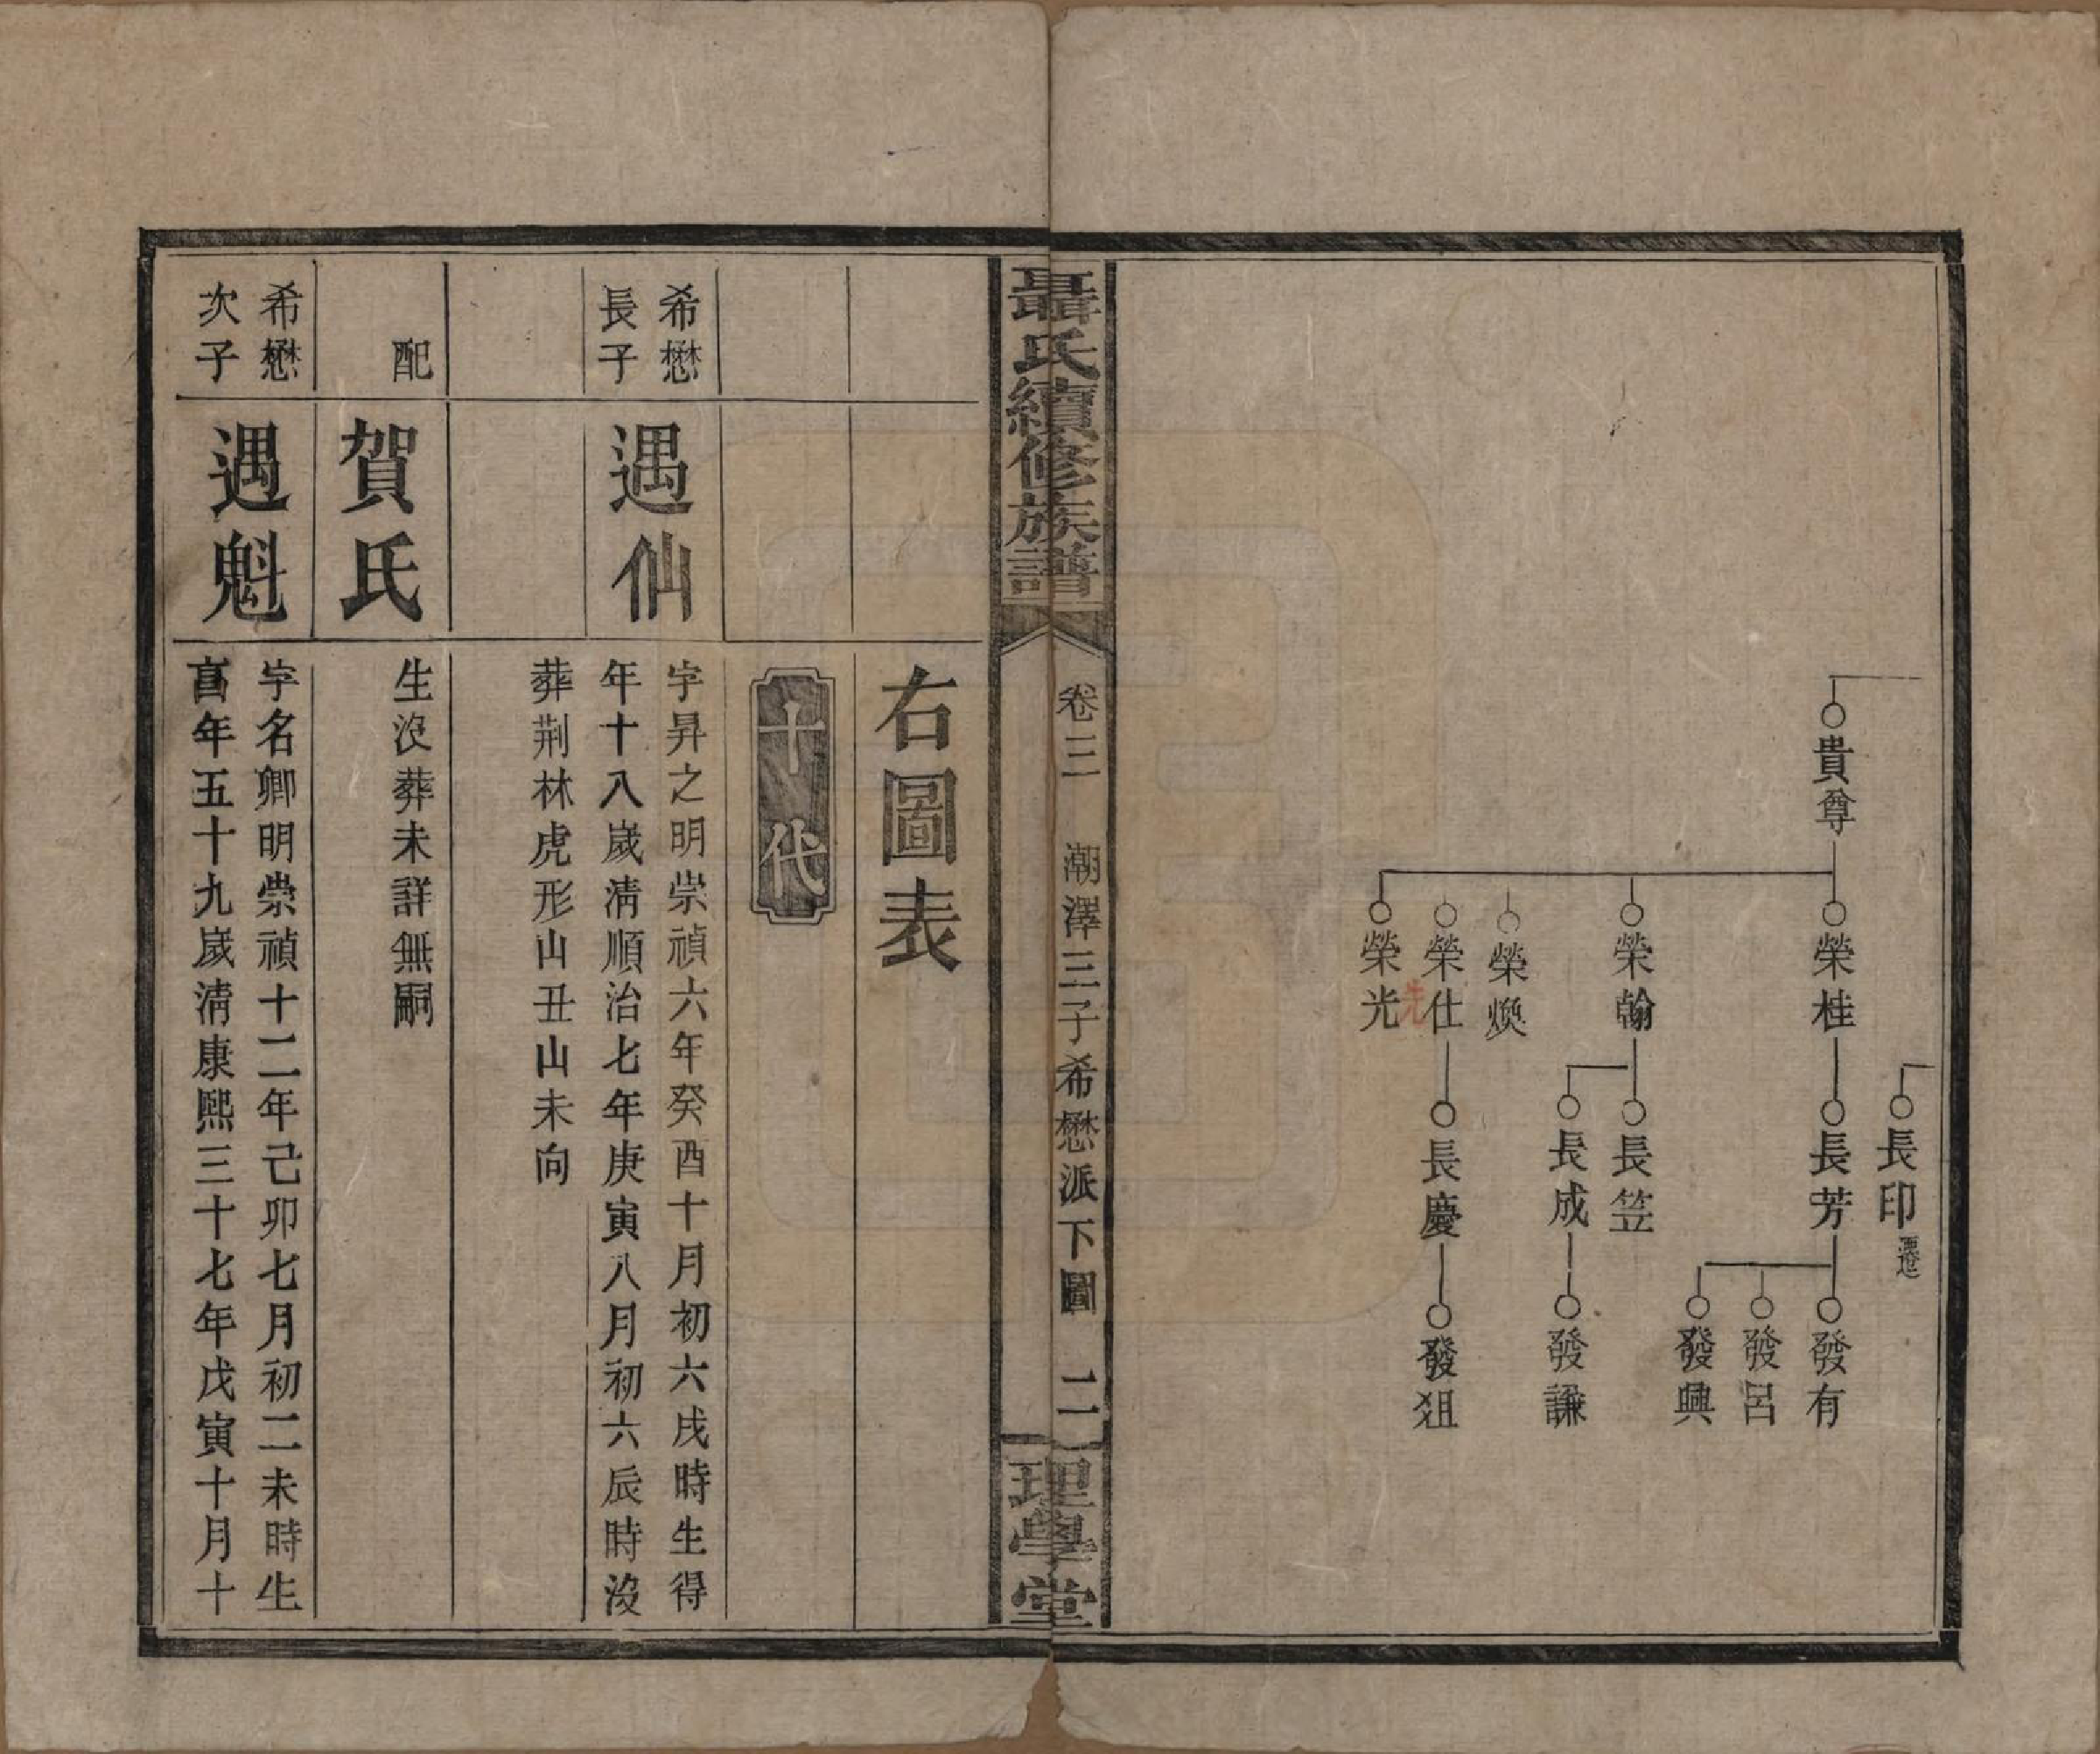 貴尊
榮桂
榮翰
榮煥
榮仕
先
榮光
長印
遷
長芳
長笠
長成
長慶
發有
發呂
發興
發謙
發狙
聶氏續修族譜
卷三
潮澤三子希懋派下圖
二
理學堂
右圖表
十代
希懋
長子
遇仙
字昇之明崇禎六年癸酉十月初六戌時生得
年十八歲清順治七年庚寅八月初六辰時沒
葬荆林虎形山丑山未向
配
賀氏
生沒葬未詳無嗣
希懋
次子
遇魁
字名卿明崇禎十二年己卯七月初二未時生
亯年五十九歲清康熙三十七年戊寅十月十